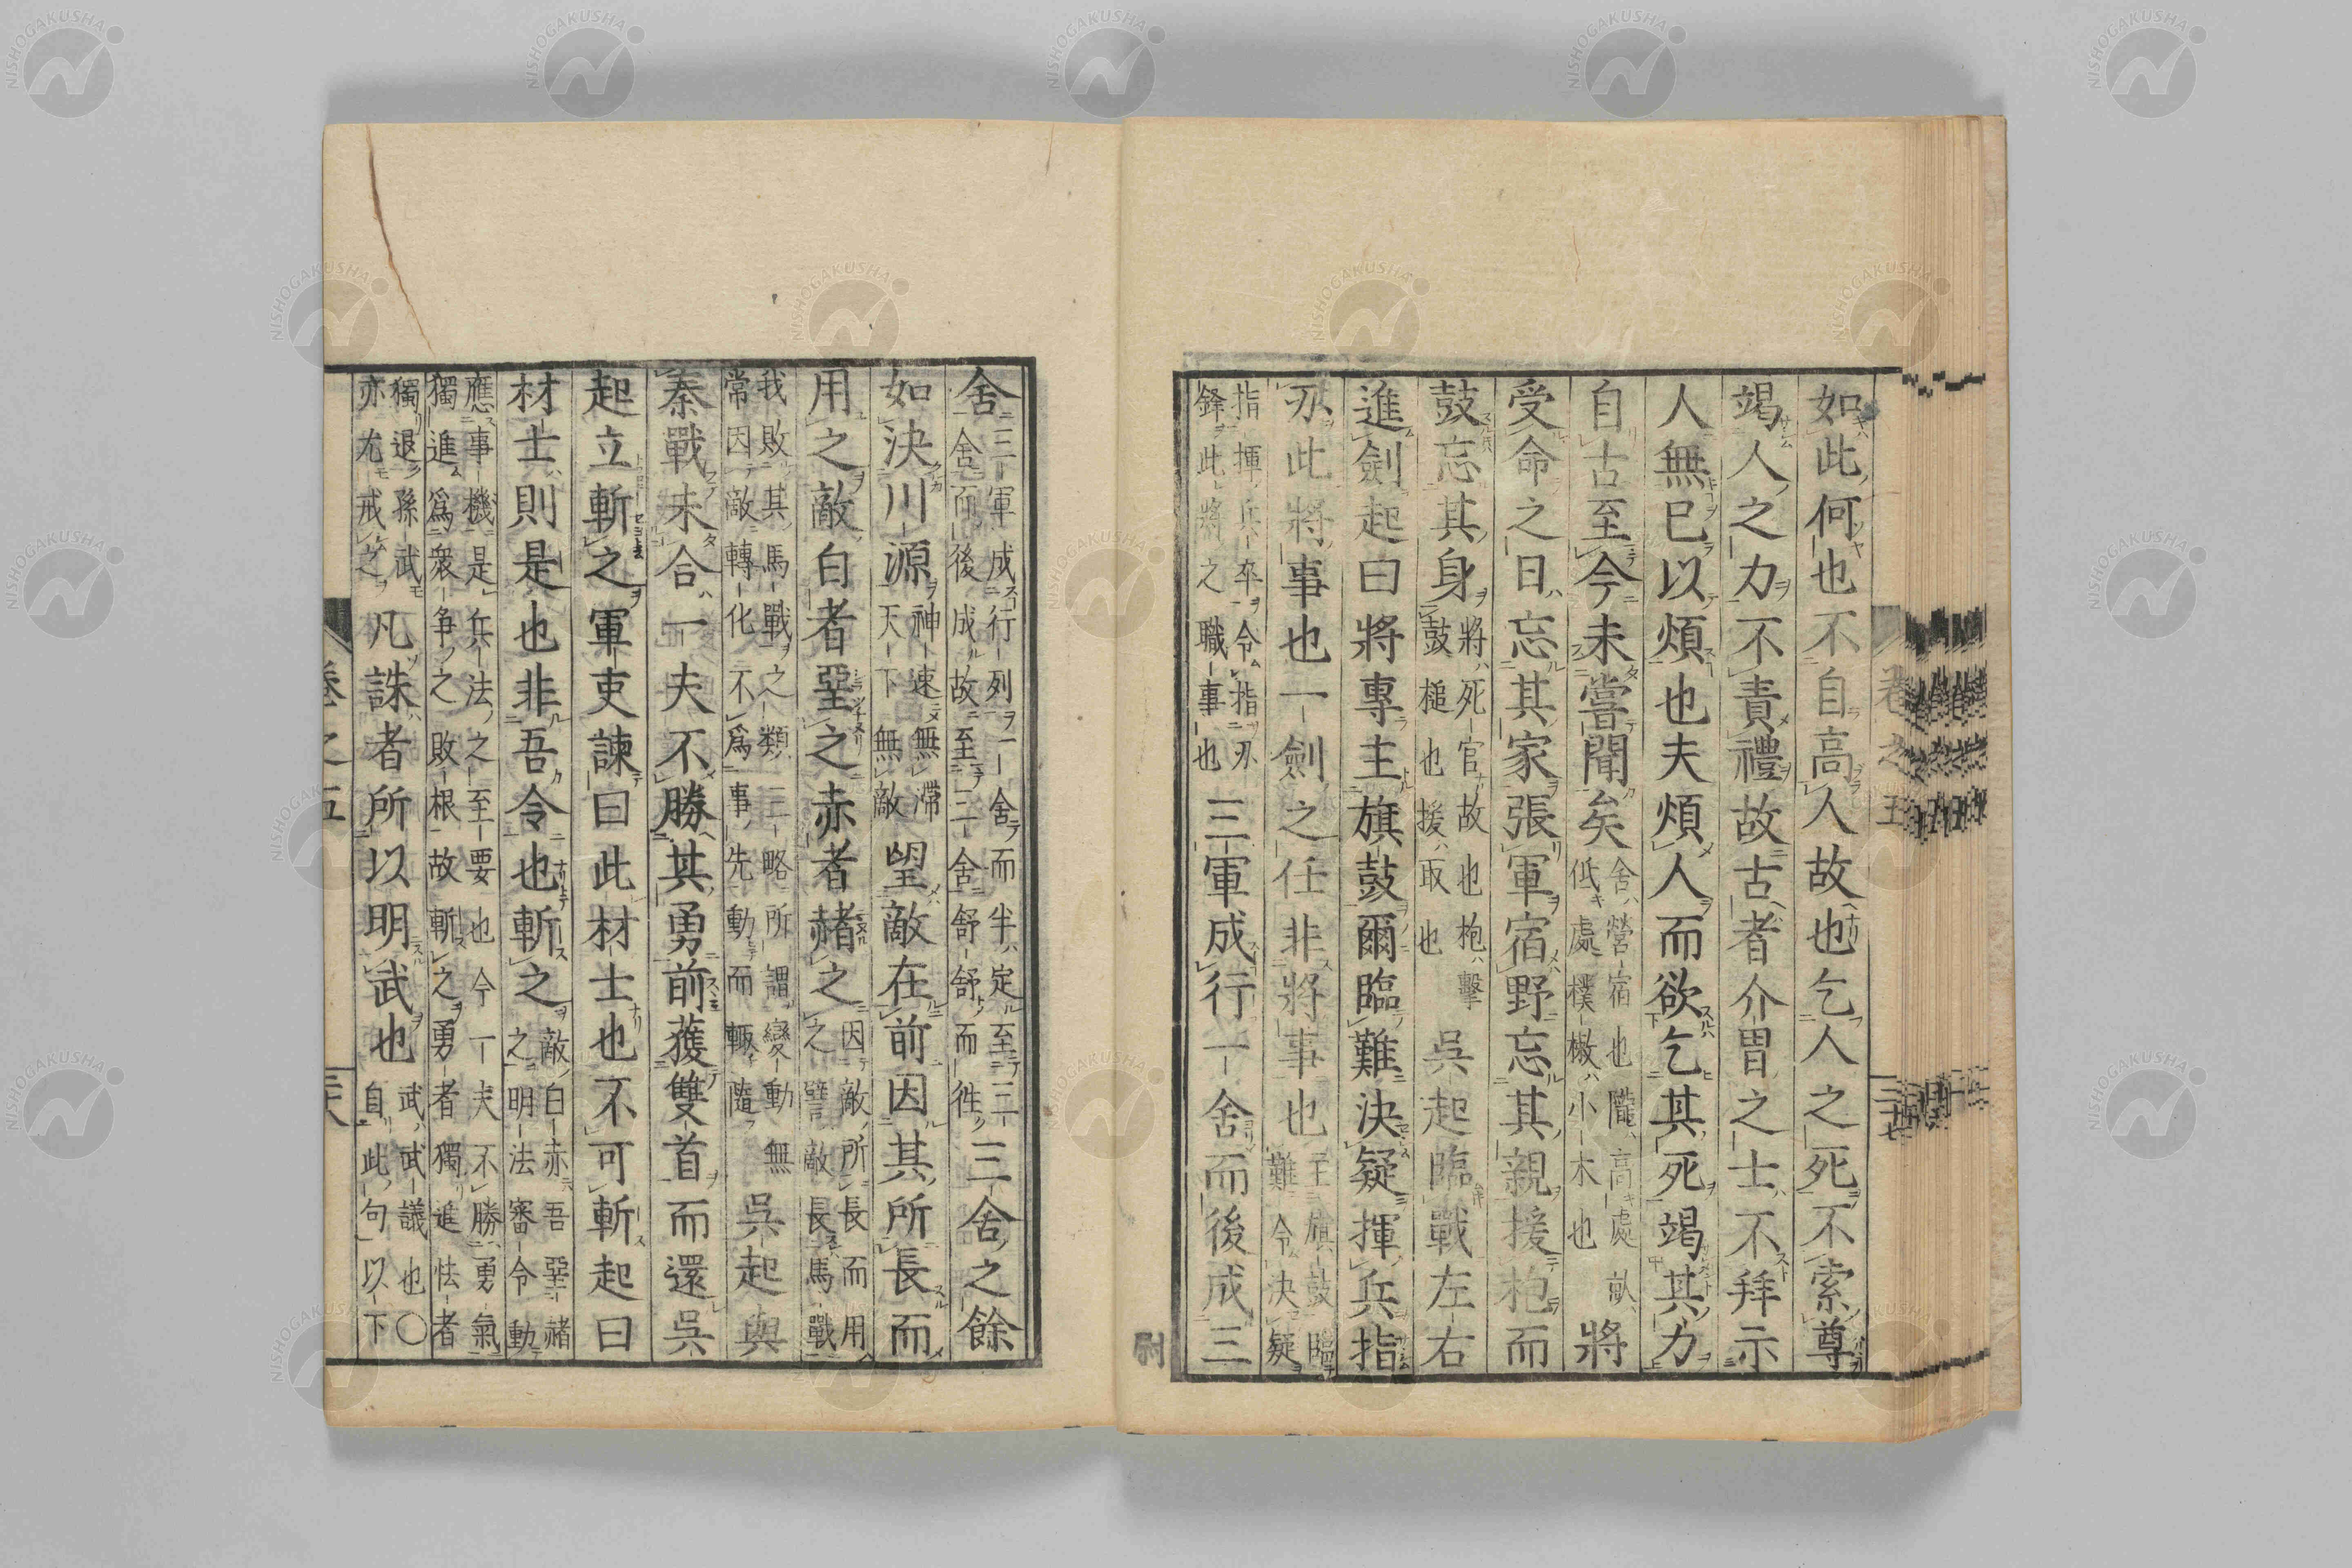 如此何也不自高人故也乞人之死不索尊
竭人之力不責禮故古者介冑之士不拜示
人無已以煩也夫煩人而欲乞其死竭其力
自古至今未嘗聞矣舍營宿也隴高處畝低處樸樕小木也將
受命之日忘其家張軍宿野忘其親援枹而
鼓忘其身將死官故也枹擊鼓槌也援取也吳起臨戰左右
進劍起曰將專主旗鼓爾臨難決疑揮兵指
刃此將事也一劍之任非將事也主旗鼓臨難令決疑
指揮兵卒令指刃鋒此將之職事也三軍成行一舍而後成三
舍三軍成行列一舍而半定至三舍而後成故至三舍舒舒而徃三舍之餘
如決川源神速無滯天下無敵望敵在前因其所長而
用之敵白者堊之赤者赭之因敵所長而用之譬敵長馬戰
我敗其馬戰之類三略所謂變動無常因敵轉化不爲事先動而輙隨吳起與
秦戰未合一夫不勝其勇前獲雙首而還吳
起立斬之軍吏諫曰此材士也不可斬起曰
材士則是也非吾令也斬之敵白赤吾堊赭之明法審令動
應事機是兵法之至要也今一夫不勝勇氣獨進爲衆争之敗根故斬之勇者獨進怯者
獨退孫武亦尤戒之凡誅者所以明武也武武議也〇自此句以下
卷之五
卷之五
NISHOGAKUSHA